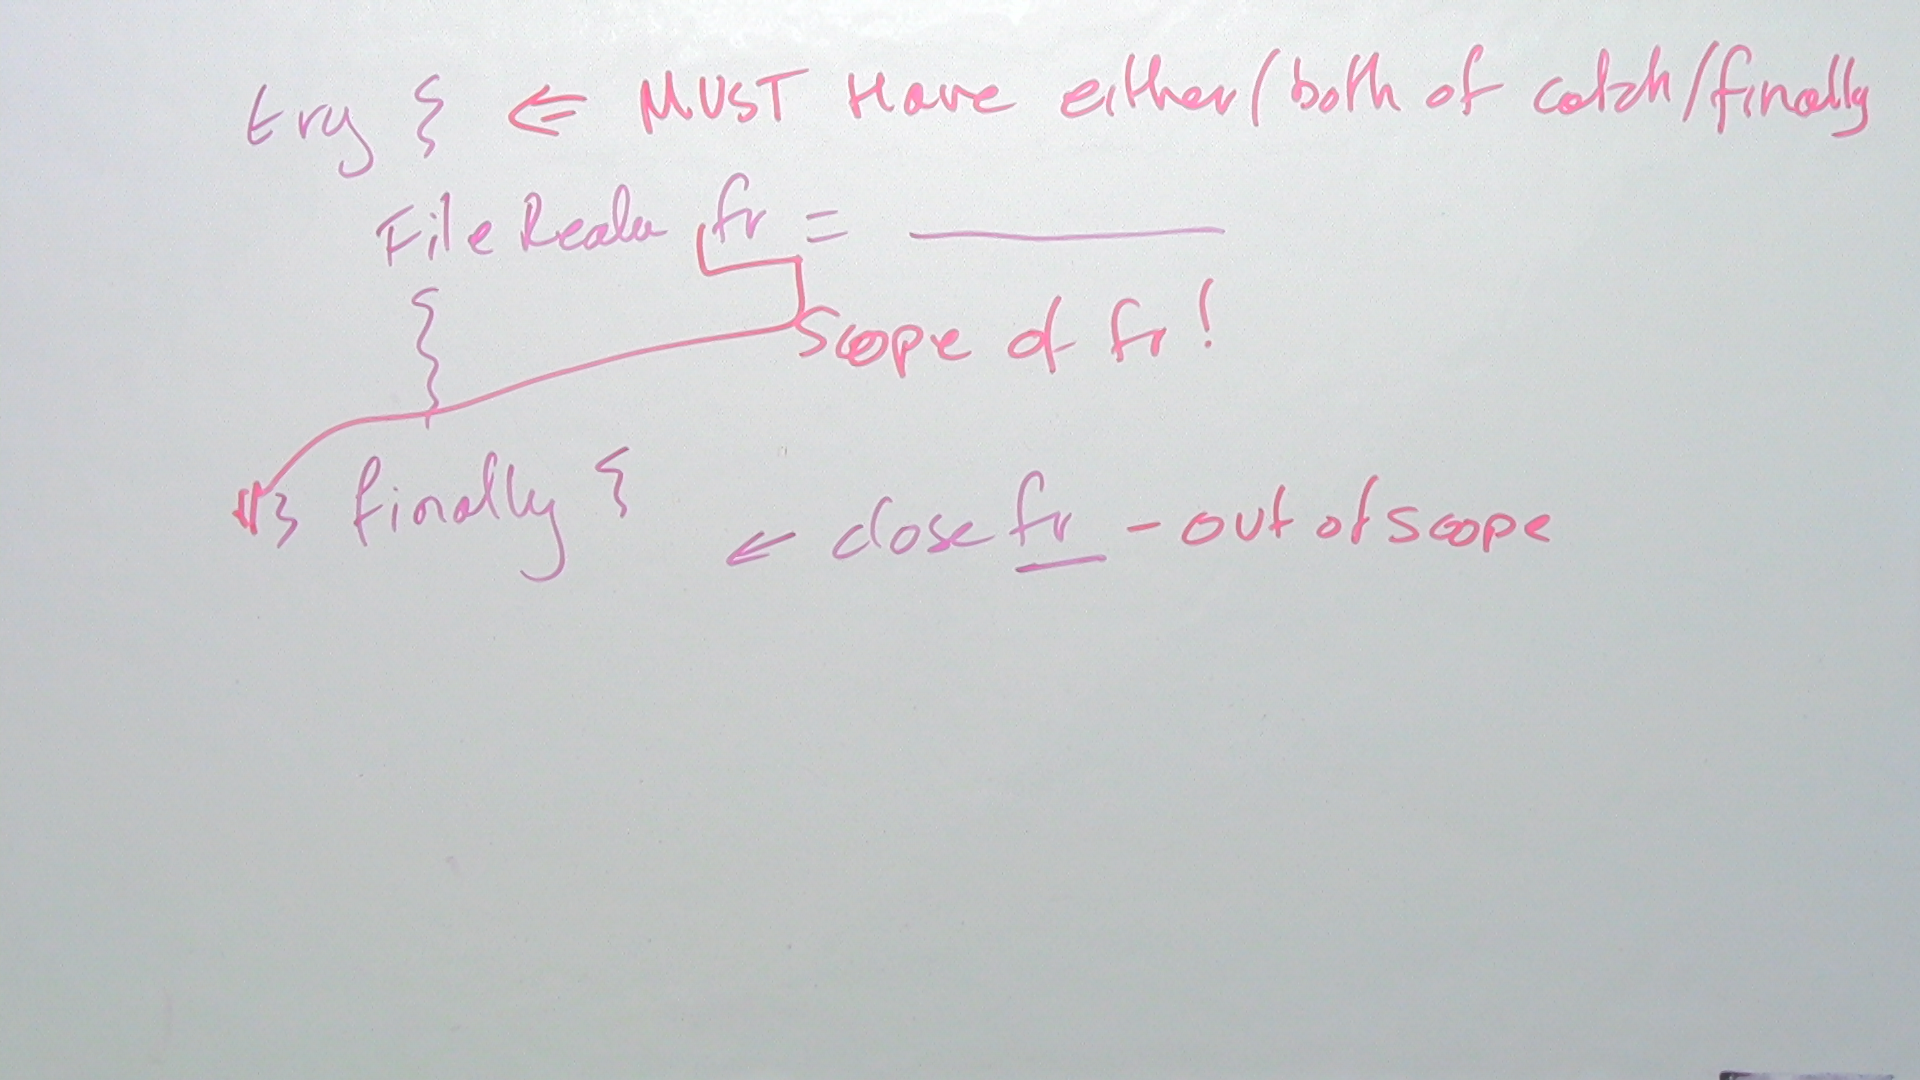 try { ⇐ MUST Have either/both of catch/finally
FileReader fr =
Scope of fr!
} finally {
← close fr - out of scope